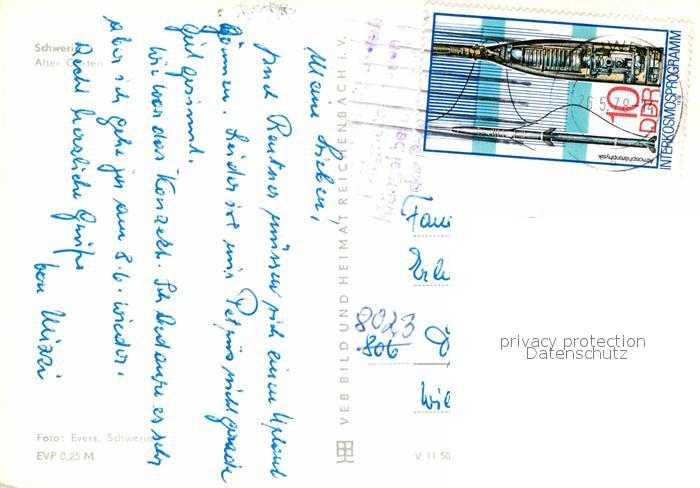 Schwerin
Alter Garten
Meine Lieben!
auch Rentner müssen sich einen Urlaub
gönnen. Leider ist uns Petrus nicht gerade
gut gesinnt.
Wie war das Konzert. Ich bedaure es sehr
aber ich gehe ja am 8.6. wieder.
Recht herzliche Grüße
Foto: Evers, Schwerin
EVP 0,25 M
VEB BILD UND HEIMAT REICHENBACH i. V.
V 11 50
26.5.78
10
DDR
INTERKOSMOSPROGRAMM
Atmosphärenphysik
Fam
8023
806
privacy protection
Datenschutz